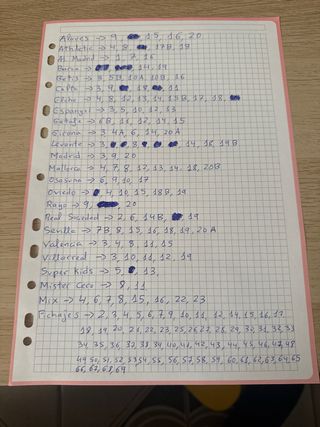 Alaves → 9, 15, 16, 20
Athletic → 4, 8, 17B, 18
A. Madrid → 1, 7, 16
Barca → 14, 19
Betis → 3, 5B, 10A, 10B, 16
Celta → 3, 9, 18, 11
Elche → 4, 8, 12, 13, 14, 15B, 17, 18,
Espanyol → 3, 5, 10, 12, 13
Getafe → 6B, 11, 12, 14, 15
Girona → 3, 4A, 6, 14, 20A
Levante → 3, 8, 14, 16, 19B
Madrid → 3, 9, 20
Mallorca → 4, 7, 8, 12, 13, 14, 18, 20B
Osasuna → 6, 9, 10, 17
Oviedo → 4, 10, 15, 18B, 19
Rayo → 9, 20
Real Sociedad → 2, 6, 14B, 19
Sevilla → 7B, 8, 15, 16, 18, 19, 20A
Valencia → 3, 4, 8, 11, 15
Villarreal → 3, 10, 11, 12, 19
Super Kids → 5, 13,
Mister Cero → 8, 11
Mix → 4, 6, 7, 8, 15, 16, 22, 23
Fichajes → 2, 3, 4, 5, 6, 7, 9, 10, 11, 12, 14, 15, 16, 17
18, 19, 20, 21, 22, 23, 25, 26, 27, 28, 29, 30, 31, 32, 33
34, 35, 36, 37, 38, 39, 40, 41, 42, 43, 44, 45, 46, 47, 48
49, 50, 51, 52, 53, 54, 55, 56, 57, 58, 59, 60, 61, 62, 63, 64, 65
66, 67, 68, 69